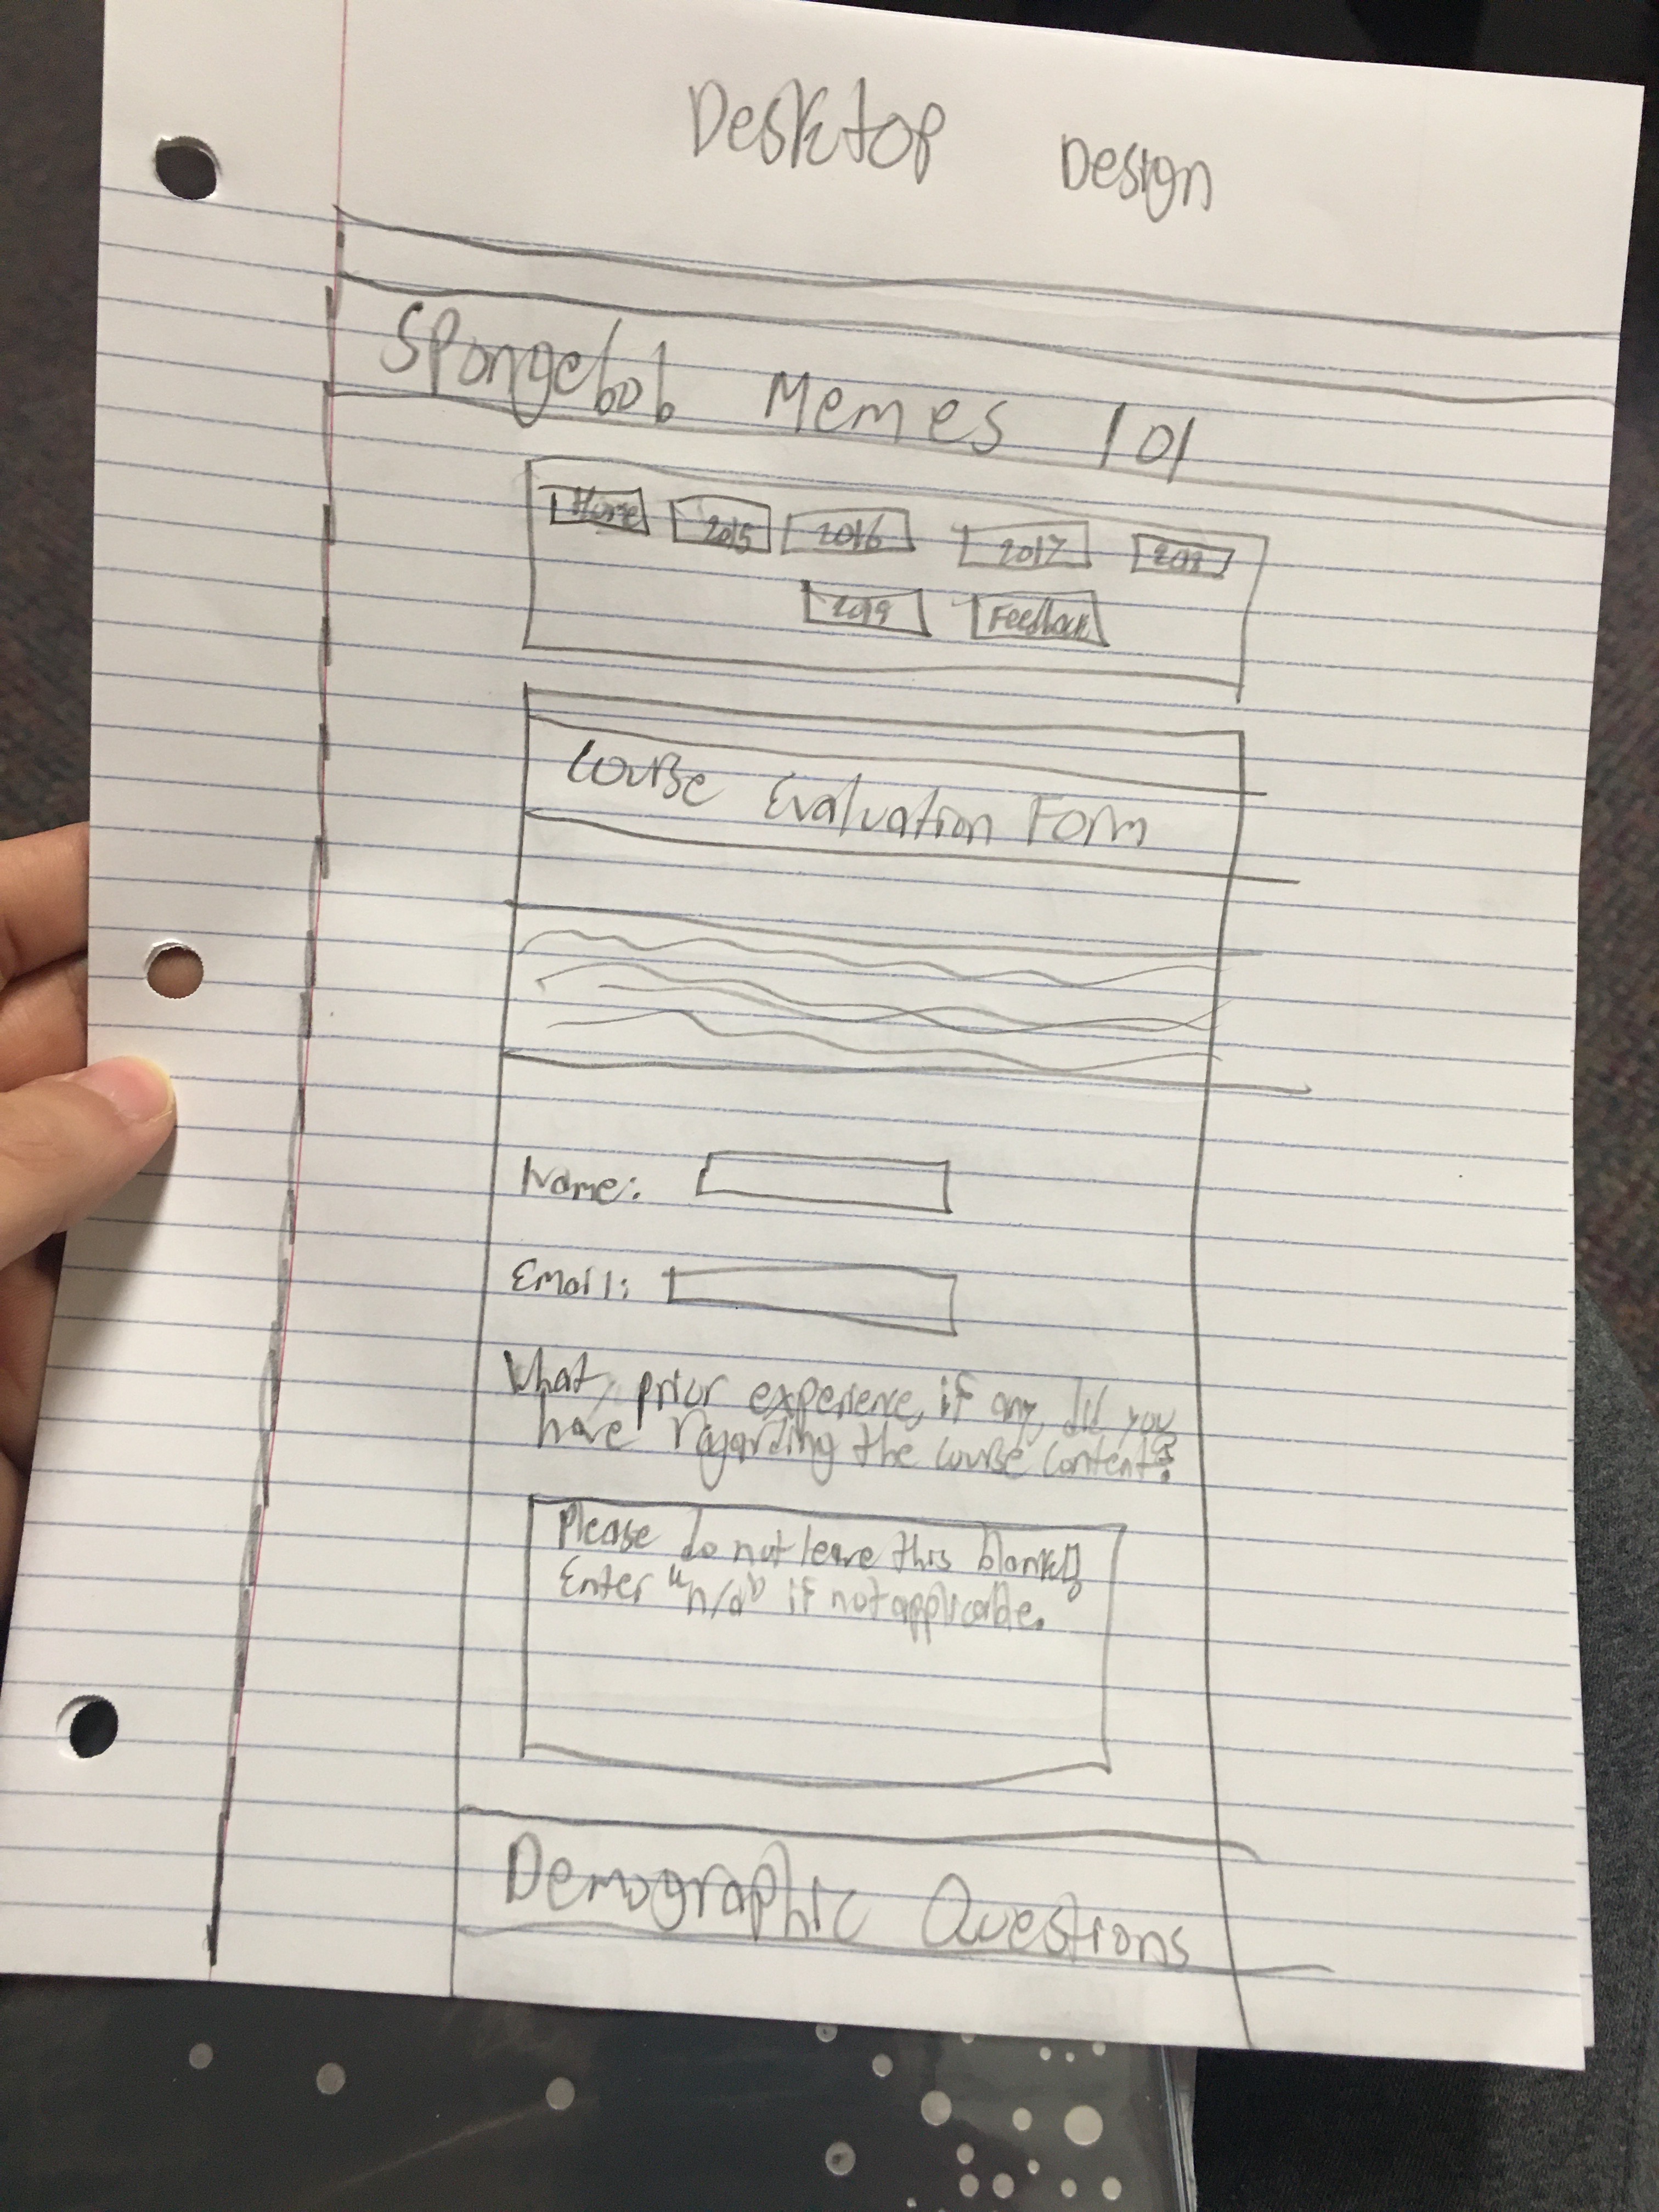 Desktop Design
Spongebob Memes 101
Home 2015 2016 2017
2019 Feedback
Course Evaluation Form
Name:
Email:
What prior experience, if any, did you
have regarding the course content?
Please do not leave this blank!
Enter "n/a" if not applicable.
Demographic Questions